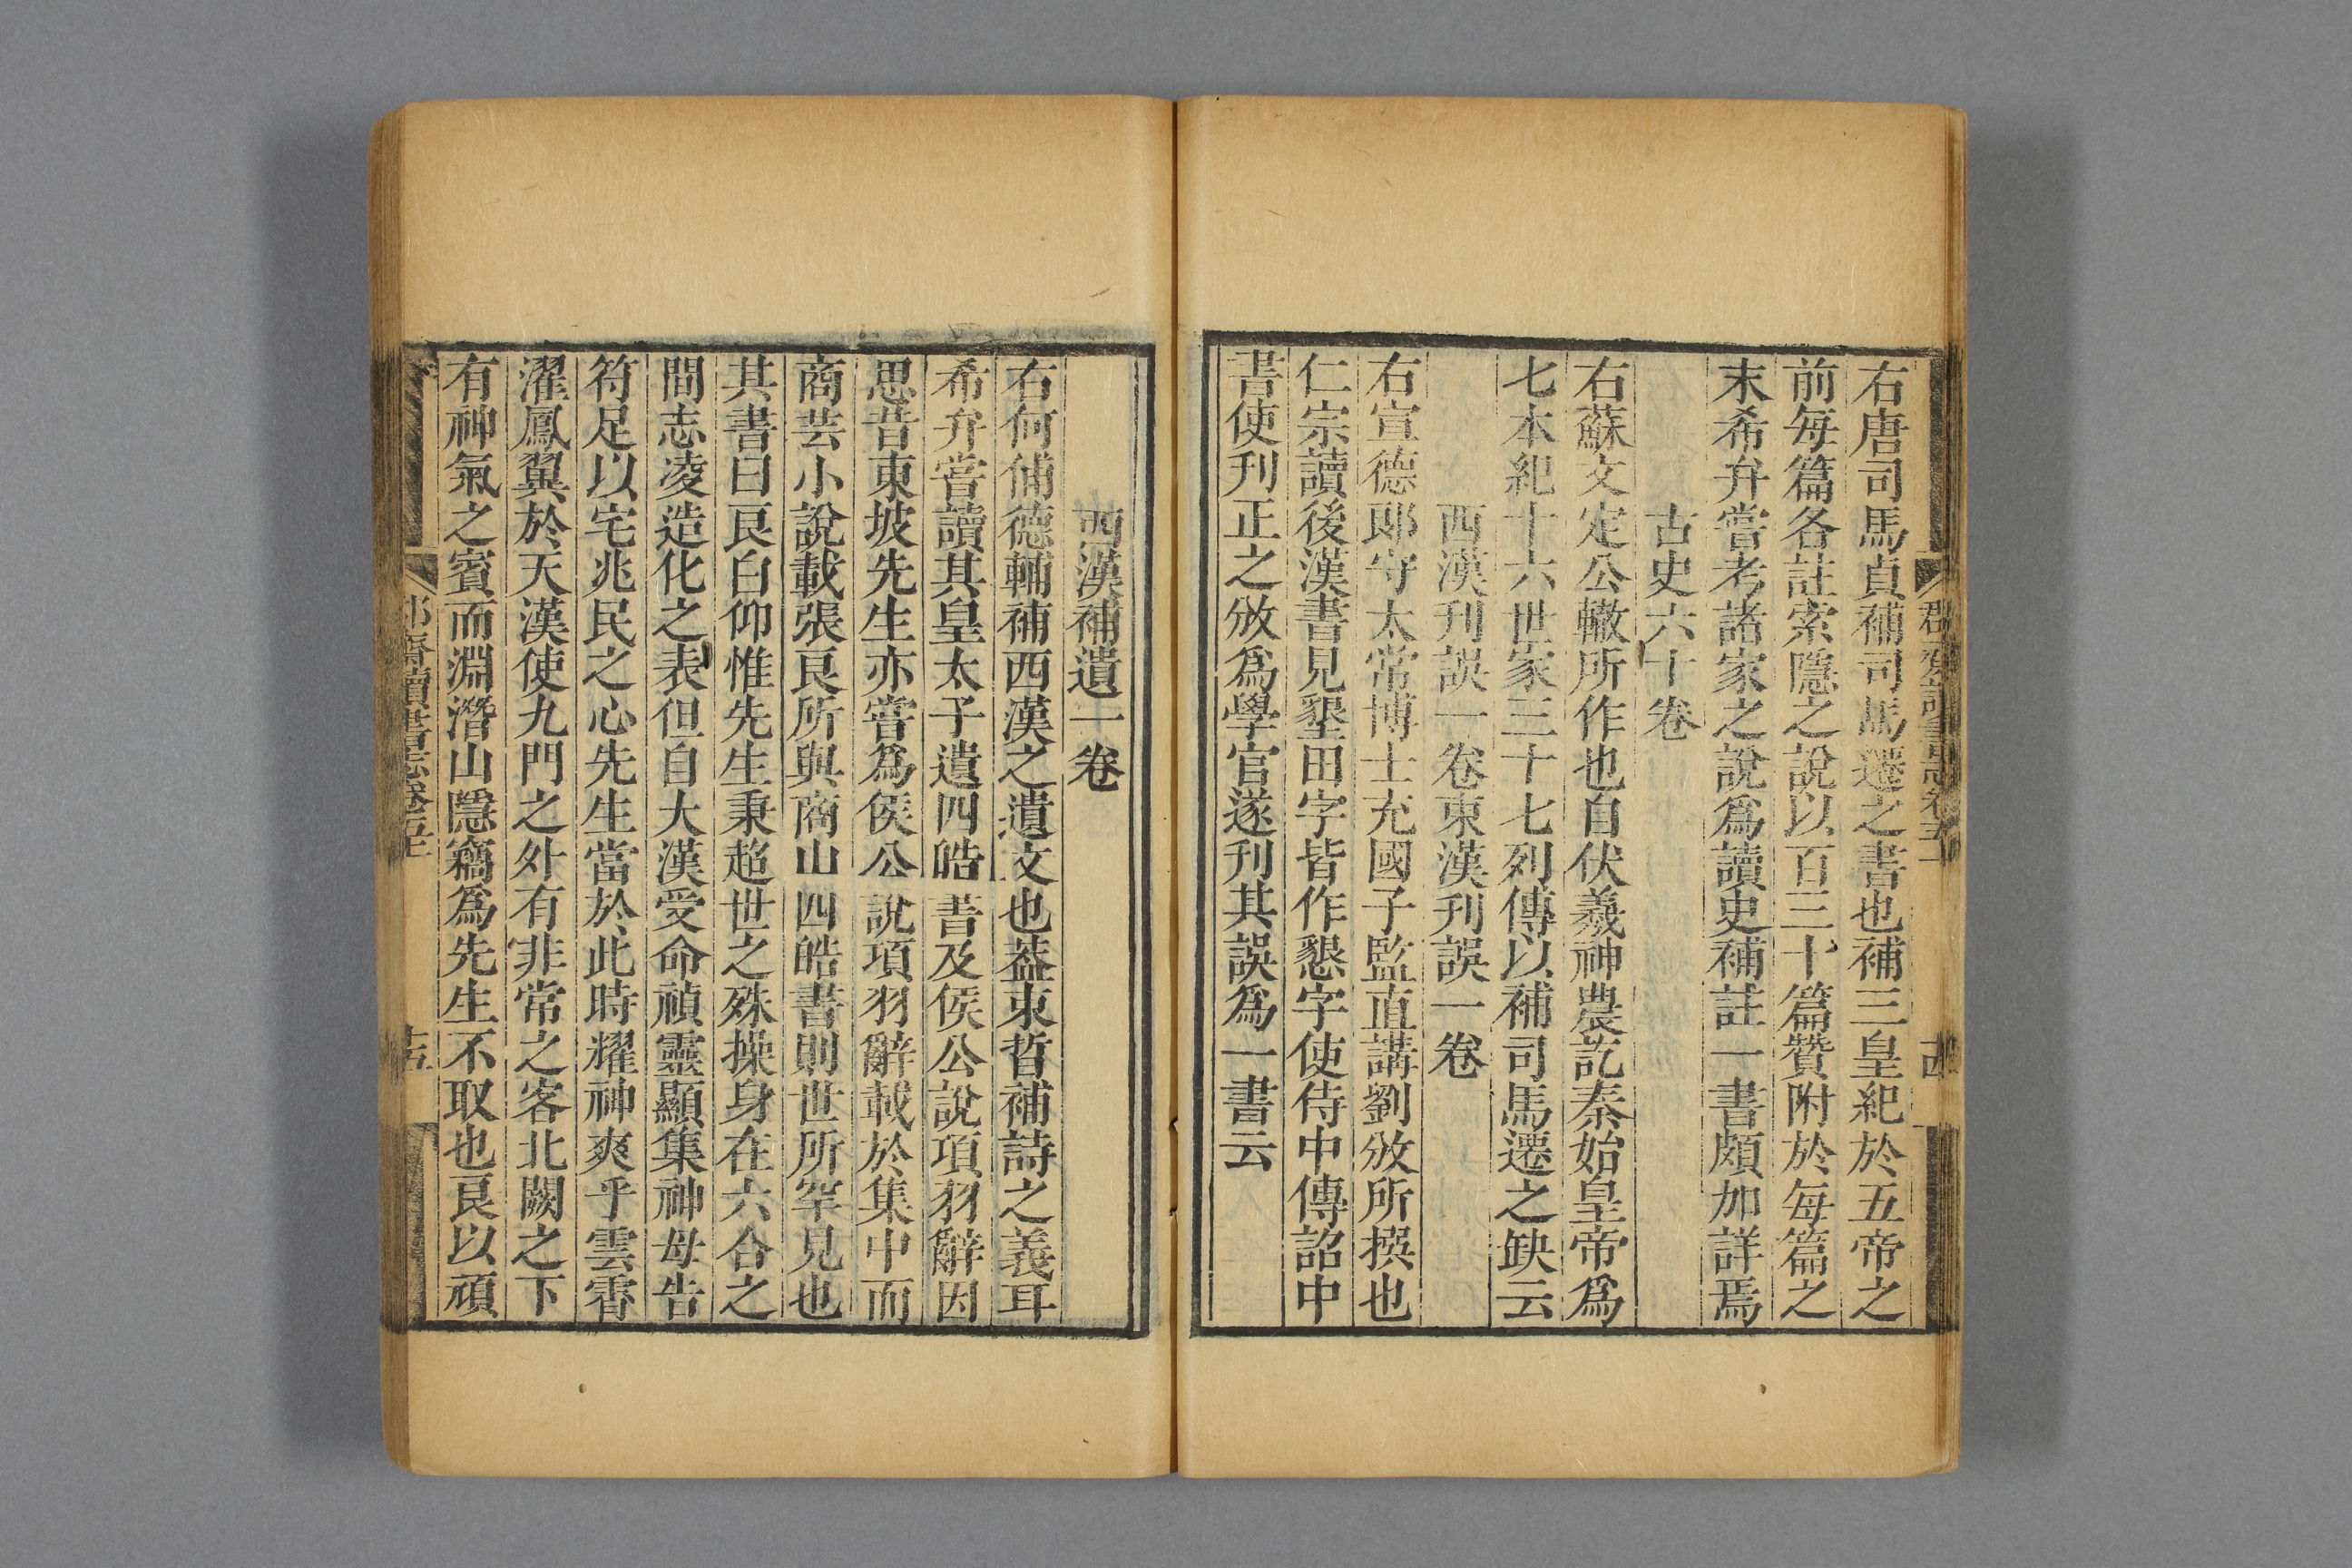 右唐司馬貞補司馬遷之書也補三皇紀於五帝之
前每篇各註索隱之說以百三十篇贊附於每篇之
末希弁嘗考諸家之說爲讀史補註一書頗加詳焉
古史六十卷
右蘇文定公轍所作也自伏羲神農訖秦始皇帝爲
七本紀十六世家三十七列傳以補司馬遷之缺云
西漢刋誤一卷東漢刋誤一卷
右宣德郞守太常博士充國子監直講劉攽所撰也
仁宗讀後漢書見墾田字皆作懇字使侍中傳詔中
書使刋正之攽爲學官遂刋其誤爲一書云
西漢補遺一卷
右何俌德輔補西漢之遺文也葢束晳補詩之義耳
希弁嘗讀其皇太子遺四皓書及侯公說項羽辭因
思昔東坡先生亦嘗爲侯公說項羽辭載於集中而
商芸小說載張良所與商山四皓書則世所罕見也
其書曰良白仰惟先生秉超世之殊操身在六合之
間志凌造化之表但自大漢受命禎靈顯集神母告
符足以宅兆民之心先生當於此時耀神爽乎雲霄
濯鳳翼於天漢使九門之外有非常之客北闕之下
有神氣之賓而淵潛山隱竊爲先生不取也良以頑